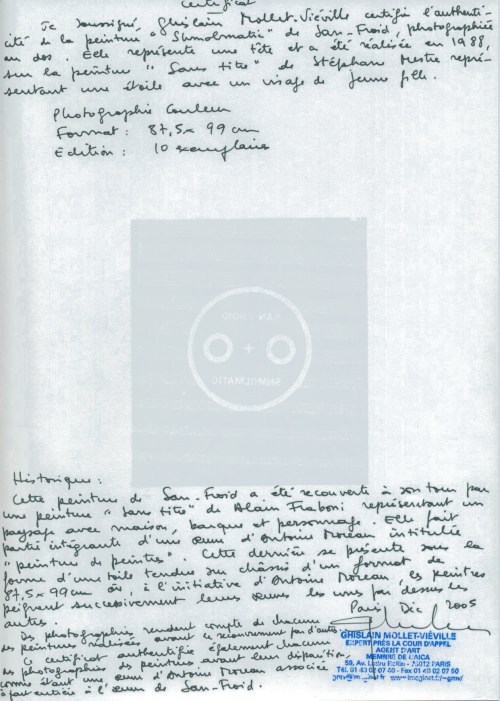 Certificat
Je soussigné, Ghislain Mollet-Viéville certifie l'authenti-
cité de la peinture "Shmolmatic" de San-Froid, photographiée
au dos. Elle représente une tête et a été réalisée en 1988,
sur la peinture "Sans titre" de Stéphan Mestre repré-
sentant une étoile avec un visage de jeune fille.
Photographie Couleur
Format : 87,5 x 99 cm
Edition : 10 exemplaires
SAN FROID
+
SHMOLMATIC
Historique :
Cette peinture de San-Froid a été recouverte à son tour par
une peinture "sans titre" de Alain Fraboni représentant un
paysage avec maison, barque et personnage. Elle fait
partie intégrante d'une œuvre d'Antoine Moreau intitulée
"peinture de peintres". Cette dernière se présente sous la
forme d'une toile tendue sur châssis d'un format de
87,5 x 99 cm où, à l'initiative d'Antoine Moreau, les peintres
peignent successivement leurs œuvres les uns par dessus les
autres.
Paris Déc 2005
Des photographies rendent compte de chacune
des peintures réalisées avant ce recouvrement par d'autres.
Ce certificat authentifie également chacune
des photographies des peintures avant leur disparition,
comme étant une œuvre d'Antoine Moreau associée
à part entière à l'œuvre de San-Froid.
GHISLAIN MOLLET-VIÉVILLE
EXPERT PRÈS LA COUR D'APPEL
AGENT D'ART
MEMBRE DE L'AICA
Av. Ledru Rollin - 75012 PARIS
Tél. 01 43 02 07 60 - Fax 01 43 02 07 50